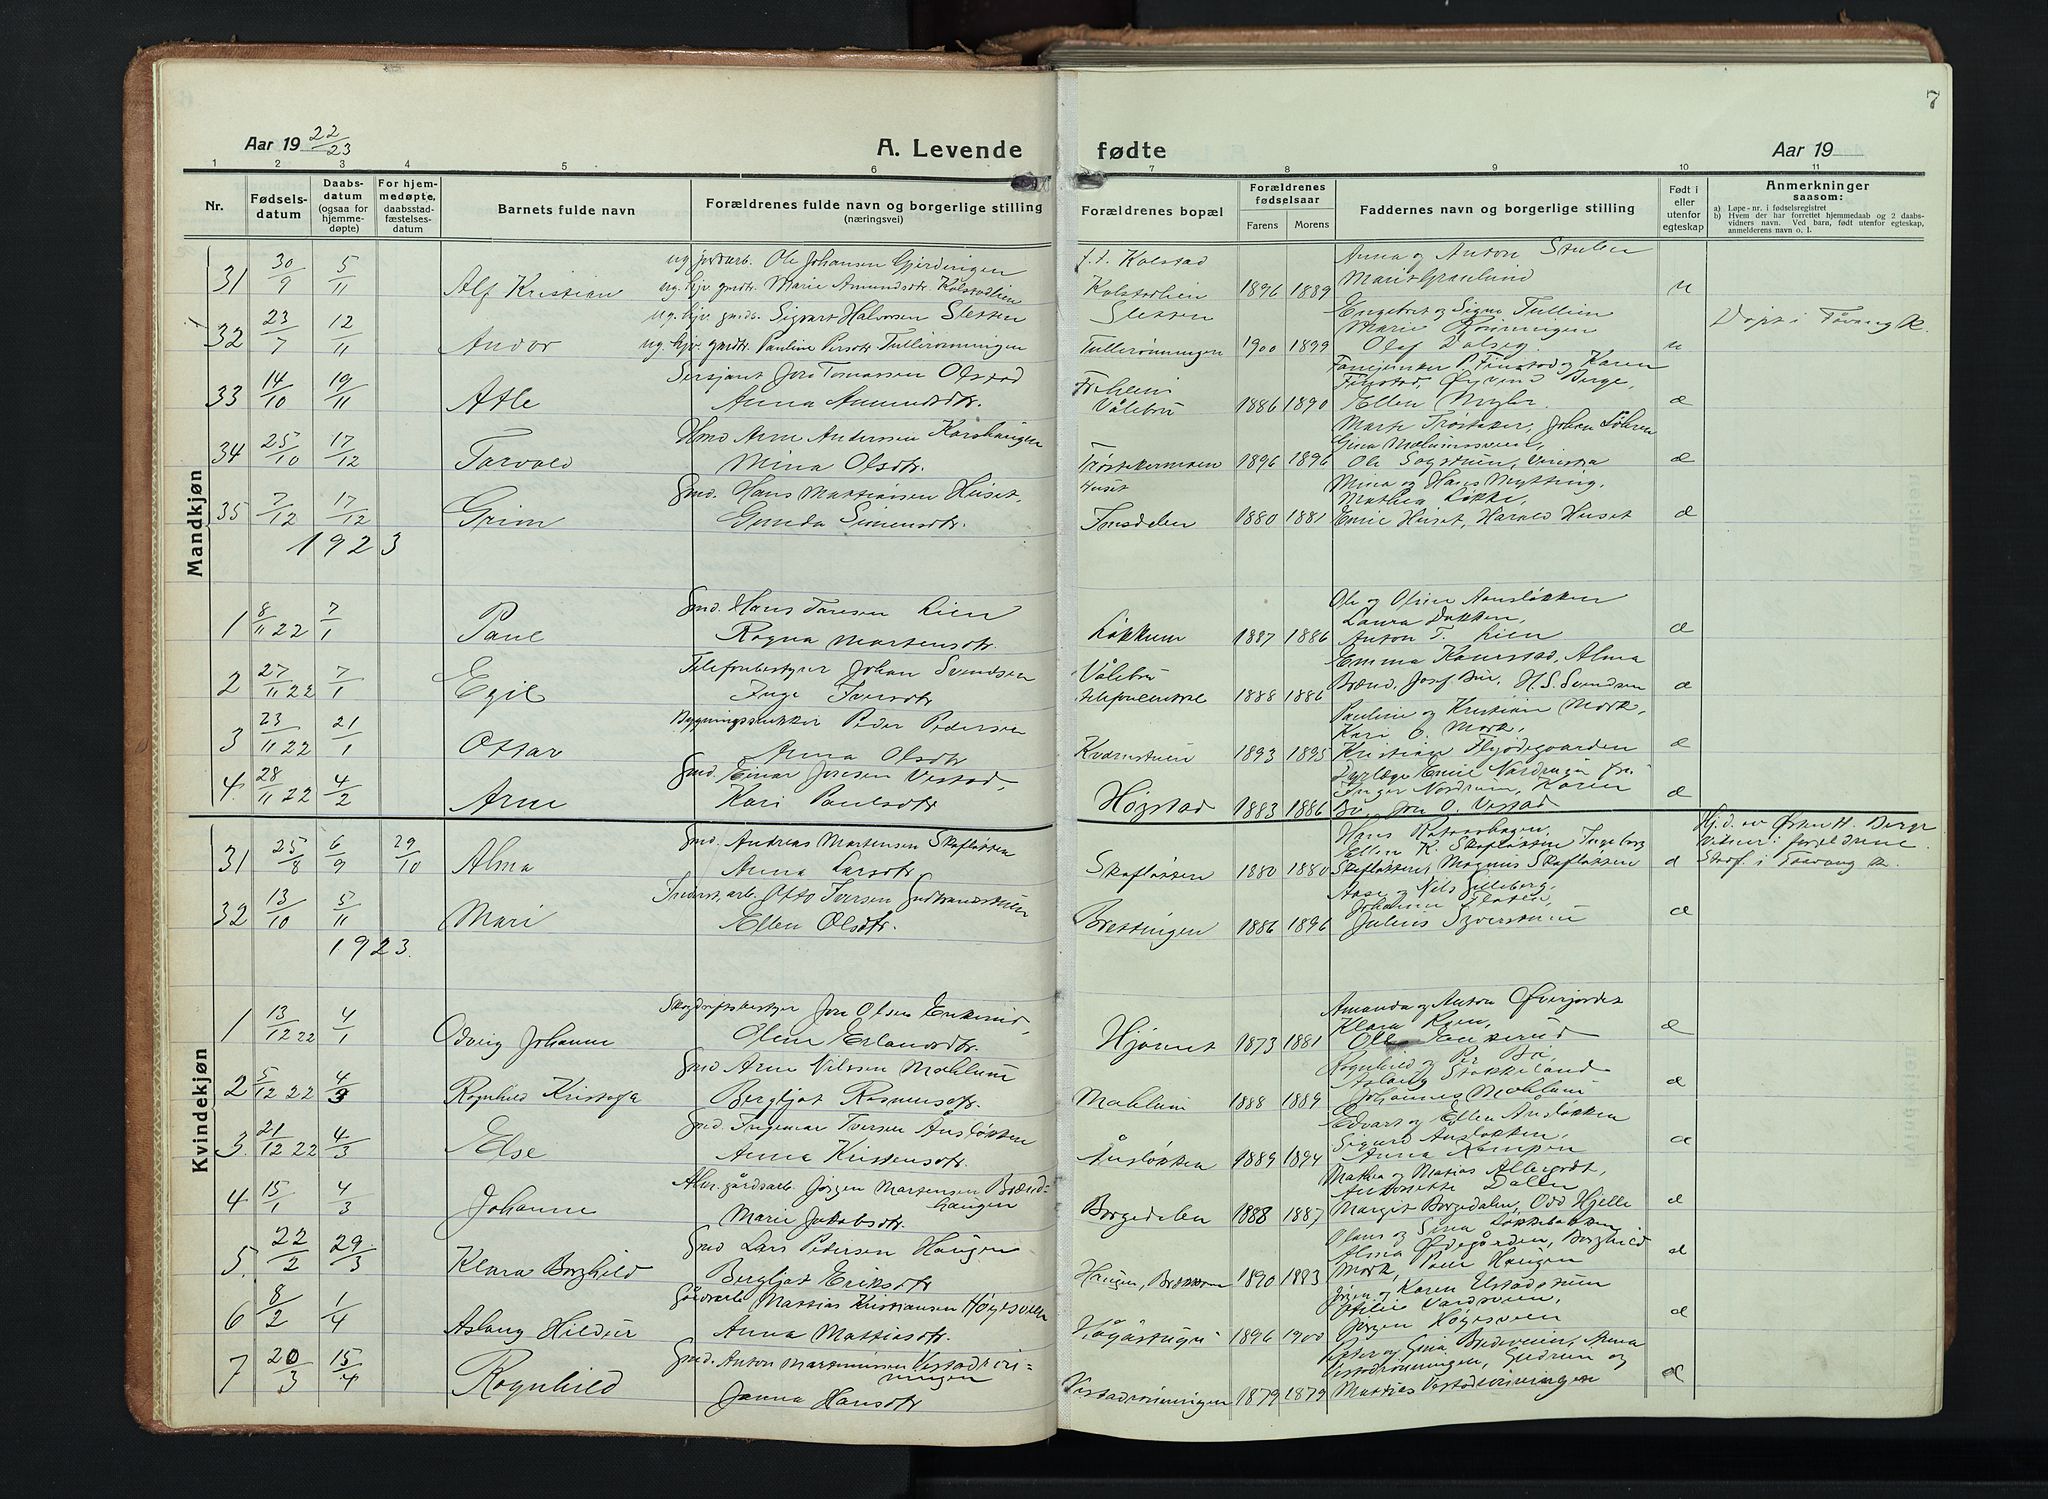 7
Aar 19 22/23
A. Levende fødte
Aar 19
1 2 3 4 5 6 7 8 9 10 11
Nr.
Fødsels-datum
Daabs-datum (ogsaa for hjemme-døpte)
For hjem-medøpte, daabsstad-fæstelses-datum
Barnets fulde navn
Forældrenes fulde navn og borgerlige stilling (næringsvei)
Forældrenes bopæl
Forældrenes fødselsaar
Farens Morens
Faddernes navn og borgerlige stilling
Født i eller utenfor egteskap
Anmerkninger saasom:
a) Løpe-nr. i fødselsregistret
b) Hvem der har forrettet hjemmedaab og 2 daabsvidners navn. Ved barn, født utenfor egteskap, anmelderens navn o. l.
Mandkjøn
31 30/9 5/11 Alf Kristian
Ole Johansen Gjerdingen
Marie Amundsdtr. Kolstadlien
f. t. Kolstad
Kolstadlien 1896 1889
Anna og Anton Stulen
Marit Grønlund
u
32 23/7 12/11 Andor
ug. hjv. gmds. Sigvart Halvorsen Sletten
ug. hjv. gmdtr. Pauline Persdtr. Tullerønningen
Sletten
Tullerønningen 1900 1899
Engebret og Signe Tullien
Marie Rønningen
Olaf Dalseg
u
Døpt i Fåvang K.
33 14/10 19/11 Atle
Sersjant Jon Tomassen Olstad
Anna Amundsdtr.
Fåheim
Vålebru 1886 1890
Fanejunker P. Finstad og Karen
Finstad, Øyvind Berge,
Ellen Myhr.
æ
34 25/10 17/12 Torvald
Gmd Arne Andersen Korshaugen
Mina Olsdtr.
1896 1896
Marte Trøstaker, Johan
Ole Sagstuen, Vinstra
æ
35 7/12 17/12 Grim
Gmd. Hans Mattiassen Huset,
Gunda Simensdtr.
Huset
1880 1881
Mina og Hans Mytting,
Mathea Løkke,
Emil Huset, Harald Huset
æ
1923
1 8/11 22 7/1 Paul
Gmd. Hans Toresen Lien
Ragna Martensdtr.
Løkkum 1887 1886
Ole og Oline Aansløkken
Laura Bakken,
Anton T. Lien
æ
2 27/11 22 7/1 Egil
Telefonbestyrer Johan Svendsen
Inga Iversdtr
Vålebru
1888 1886
Emma Kaurstad, Alma
Brænd, Josef Bue, H. S. Svendsen
æ
3 23/11 22 21/1 Ottar
Bygningssnekker Peder Pedersen
Anna Olsdtr
Kvarnstuen 1893 1895
Pauline og Kristian Mork,
Kari O. Mork,
Kristian Flyødegaarden
æ
4. 28/11 22 4/2 Arne
Gmd. Einar Jonsen Vestad,
Kari Paulsdtr
Høystad 1883 1886
Dyrlæge Emil Nordrum
Inger Nordrum, Karen
Bø, Jon O. Vestad
æ
Kvindekjøn
31 25/8 6/9 29/10 Alma
Gmd. Andreas Martensen Skafløkken
Anna Larsdtr.
Skafløkken 1880 1880
Ellen K. Skafløkken Ingeborg
Skafløkken, Magnus Skafløkken
æ
Hj. d. av Østen H. Berge
Vidner: forældrene.
Stadf. i Faavang K
32 13/10 5/11 Mari
Otto Iversen Gudbrandstuen
Ellen Olsdtr.
Brettingen 1886 1896
Aase og Nils Gilleberg,
Johanne
Julius
æ
1923.
1 13/12 22 4/1 Odveig Johanne
Skogdriftsbestyr Jon Olsen Enkerud,
Oline Erlandsdtr.
Hjørnet 1873 1881
Amanda og Anton Øverjordet
Klara Roen,
Ole Enkerud
æ
2 5/12 22 4/3 Ragnhild Kristofa
Gmd Arne Nilssen Mæhlum
Bergljot Rasmusdtr.
Mæhlum 1888 1889
Ragnhild og Per Bø,
Aslaug Stokkeland
Johannes Mæhlum
æ
3. 21/12 22 4/3 Else
Gmd. Ingemar Iversen Ånsløkken
Anna Kristensdtr.
Ånsløkken 1889 1894
Edvart og Ellen Ånsløkken
Sigurd Ansløkken,
Anna Kampen
æ
4 15/1 4/3 Johanne
Alm. gårdsarb. Jørgen Martensen Brænd-
haugen
Marie Jakobsdtr.
Borgedalen 1888 1887
Mathea og Matias
Antonette Dalen
Margit Borgedalen, Odd Hjelle
æ
5. 22/2 29/3 Klara Borghild
Gmd Lars Pedersen Haugen
Bergljot Eriksdtr
Haugen, 1890 1883
Olaus og Gina Løkkebakken
Alma Ødegården, Borghild
Mork, Paul Haugen
æ
6 8/2 1/4 Aslaug Hildur
Gårdarb Mattias Kristiansen Høgesveen
Anna Mattiasdtr.
1896 1900
Jørgen og Karen Elstadstuen
Jørgen Høgesveen
æ
7 20/3 15/4 Ragnhild
Gmd. Anton Martiniussen Vestadrøn-
ningen
Janna Hansdtr
Vestadrønningen 1879 1879
Peter og Gina Bredeveien, Anna
Vestadrønningen, Gudrun og
Mattias Vestadrønningen
æ